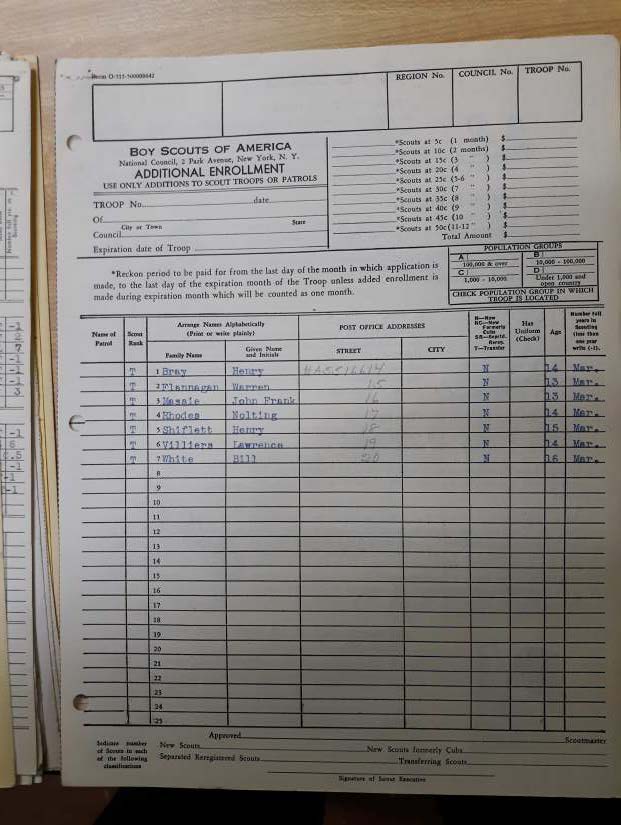 Form O-315-500000642
REGION No. COUNCIL No. TROOP No.
BOY SCOUTS OF AMERICA
National Council, 2 Park Avenue, New York, N. Y.
ADDITIONAL ENROLLMENT
USE ONLY ADDITIONS TO SCOUT TROOPS OR PATROLS
TROOP No. date
Of
City or Town State
Council
Expiration date of Troop
*Scouts at 5c (1 month) $
*Scouts at 10c (2 months) $
*Scouts at 15c (3 " ) $
*Scouts at 20c (4 " ) $
*Scouts at 25c (5-6 " ) $
*Scouts at 30c (7 " ) $
*Scouts at 35c (8 " ) $
*Scouts at 40c (9 " ) $
*Scouts at 45c (10 " ) $
*Scouts at 50c (11-12 " ) $
Total Amount $
*Reckon period to be paid for from the last day of the month in which application is
made, to the last day of the expiration month of the Troop unless added enrollment is
made during expiration month which will be counted as one month.
POPULATION GROUPS
A B
100,000 & over 10,000 - 100,000
C D
1,000 - 10,000 Under 1,000 and
open country
CHECK POPULATION GROUP IN WHICH
TROOP IS LOCATED
Name of Patrol Scout Rank Arrange Names Alphabetically (Print or write plainly) Family Name Given Name and Initials POST OFFICE ADDRESSES STREET CITY N—New NC—New Formerly Cubs SR—Sep'td. Rereg. T—Transfer Has Uniform (Check) Age Number full years in Scouting (less than one year write (-1).
T 1 Bray Henry #A5516614 N 14 Mar.
T 2 Flannagan Warren 15 N 13 Mar.
T 3 Massie John Frank 16 N 13 Mar.
T 4 Rhodes Nolting 17 N 14 Mar.
T 5 Shiflett Henry 18 N 15 Mar.
T 6 Villiers Lawrence 19 N 14 Mar.
T 7 White Bill 20 N 16 Mar.
8
9
10
11
12
13
14
15
16
17
18
19
20
21
22
23
24
25
Approved Scoutmaster
Indicate number of Scouts in each of the following classifications
New Scouts New Scouts formerly Cubs
Separated Reregistered Scouts Transferring Scouts
Signature of Scout Executive